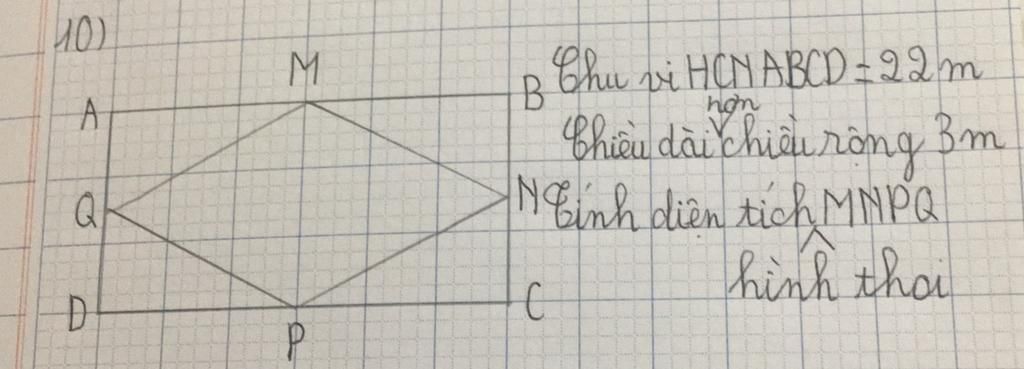 10)
M
A
B
Chu vi HCN ABCD = 22m
hơn
Chiều dài chiều rộng 3m
Q
N
Tính diện tích MNPQ
hình thoi
D
C
P